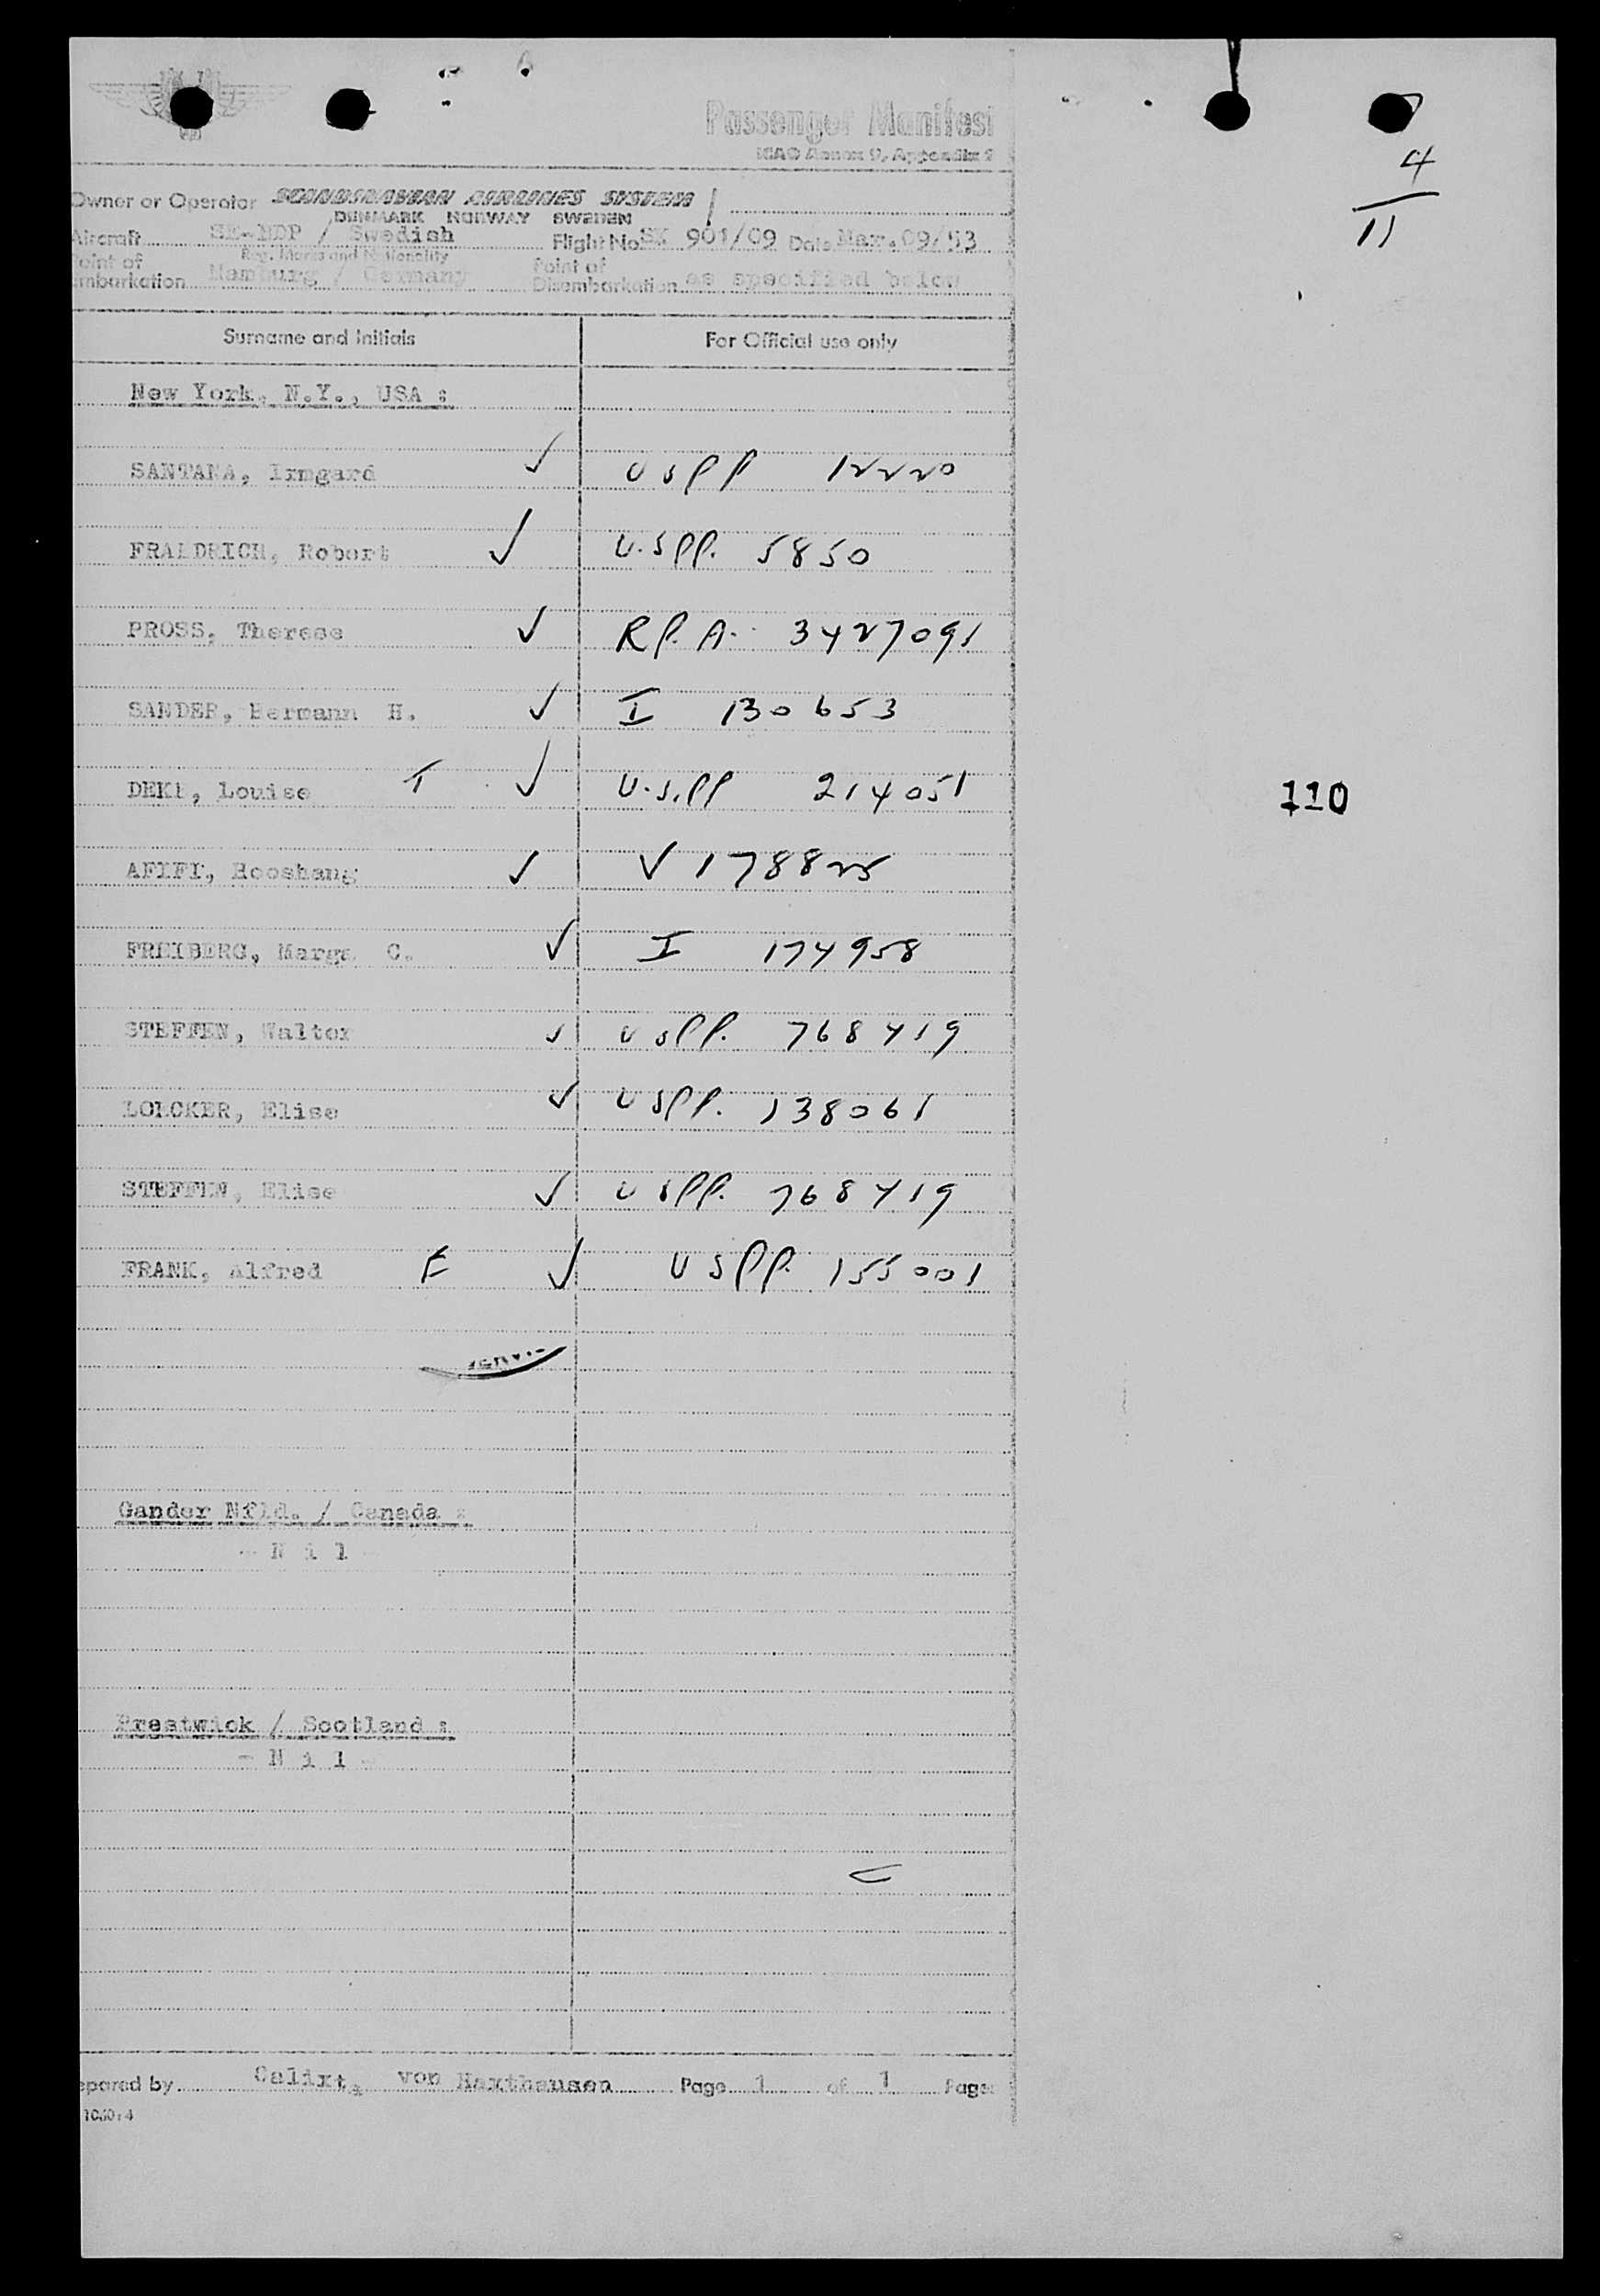 Passenger Manifest
ICAO Annex 9, Appendix 2
4
11
Owner or Operator SCANDINAVIAN AIRLINES SYSTEM
DENMARK NORWAY SWEDEN
Aircraft SE-BDP / Swedish Flight No. SK 901/09 Date Mar. 09/53
Reg. Marks and Nationality
Point of
mbarkation Hamburg / Germany Point of
Disembarkation as specified below
Surname and Initials For Official use only
New York, N.Y., USA :
SANTANA, Irmgard ✓ USPP 12220
FRALDRICH, Robert ✓ U.S.PP. 5850
PROSS, Therese ✓ R.P.A. 3427091
SANDER, Hermann H. ✓ I 130653
Louise T ✓ U.S.PP 214051
AFIFI, Hooshang ✓ V 178825
FREIBERG, Marga C. ✓ I 174958
STEFFEN, Walter ✓ USPP. 768419
LOECKER, Elise ✓ USPP. 138061
STEFFEN, Elise ✓ USPP. 768419
FRANK, Alfred E ✓ USPP. 155001
110
Gander Nfld. / Canada :
- N i l -
Prestwick / Scotland :
- N i l -
epared by Calixt, von Haxthausen Page 1 of 1 Page